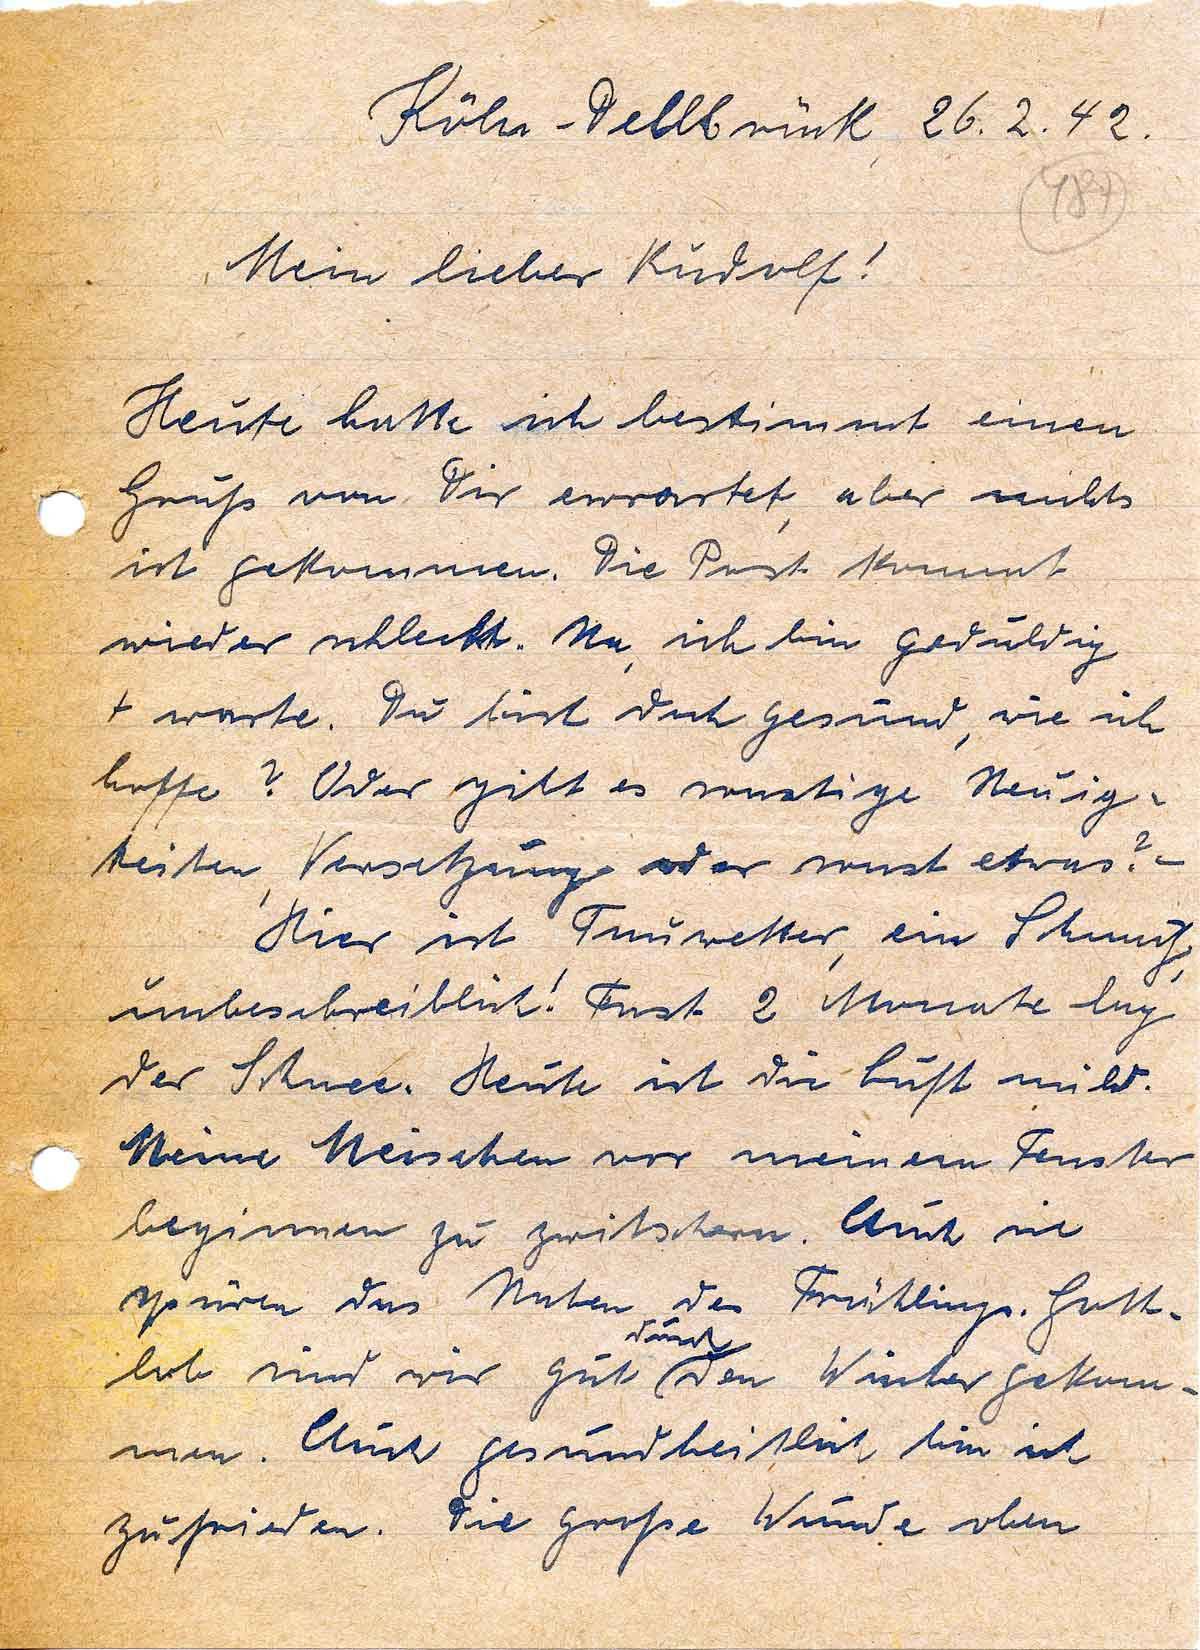 Köln-Dellbrück, 26.2.42.
Mein lieber Rudolf!
Heute hatte ich bestimmt einen
Gruß von Dir erwartet, aber nichts
ist gekommen. Die Post kommt
wieder schlecht. Na, ich bin geduldig
+ warte. Du bist doch gesund, wie ich
hoffe? Oder gibt es sonstige Neuig-
keiten, Versetzung oder sonst etwas? –
Hier ist Tauwetter, ein Schmutz,
unbeschreiblich! Fast 2 Monate lag
der Schnee. Heute ist die Luft mild.
Meine Meischen vor meinem Fenster
beginnen zu zwitschern. Auch sie
spüren das Nahen des Frühlings. Gott-
durch
lob sind wir gut den Winter gekom-
men. Auch gesundheitlich bin ich
zufrieden. Die große Wunde oben